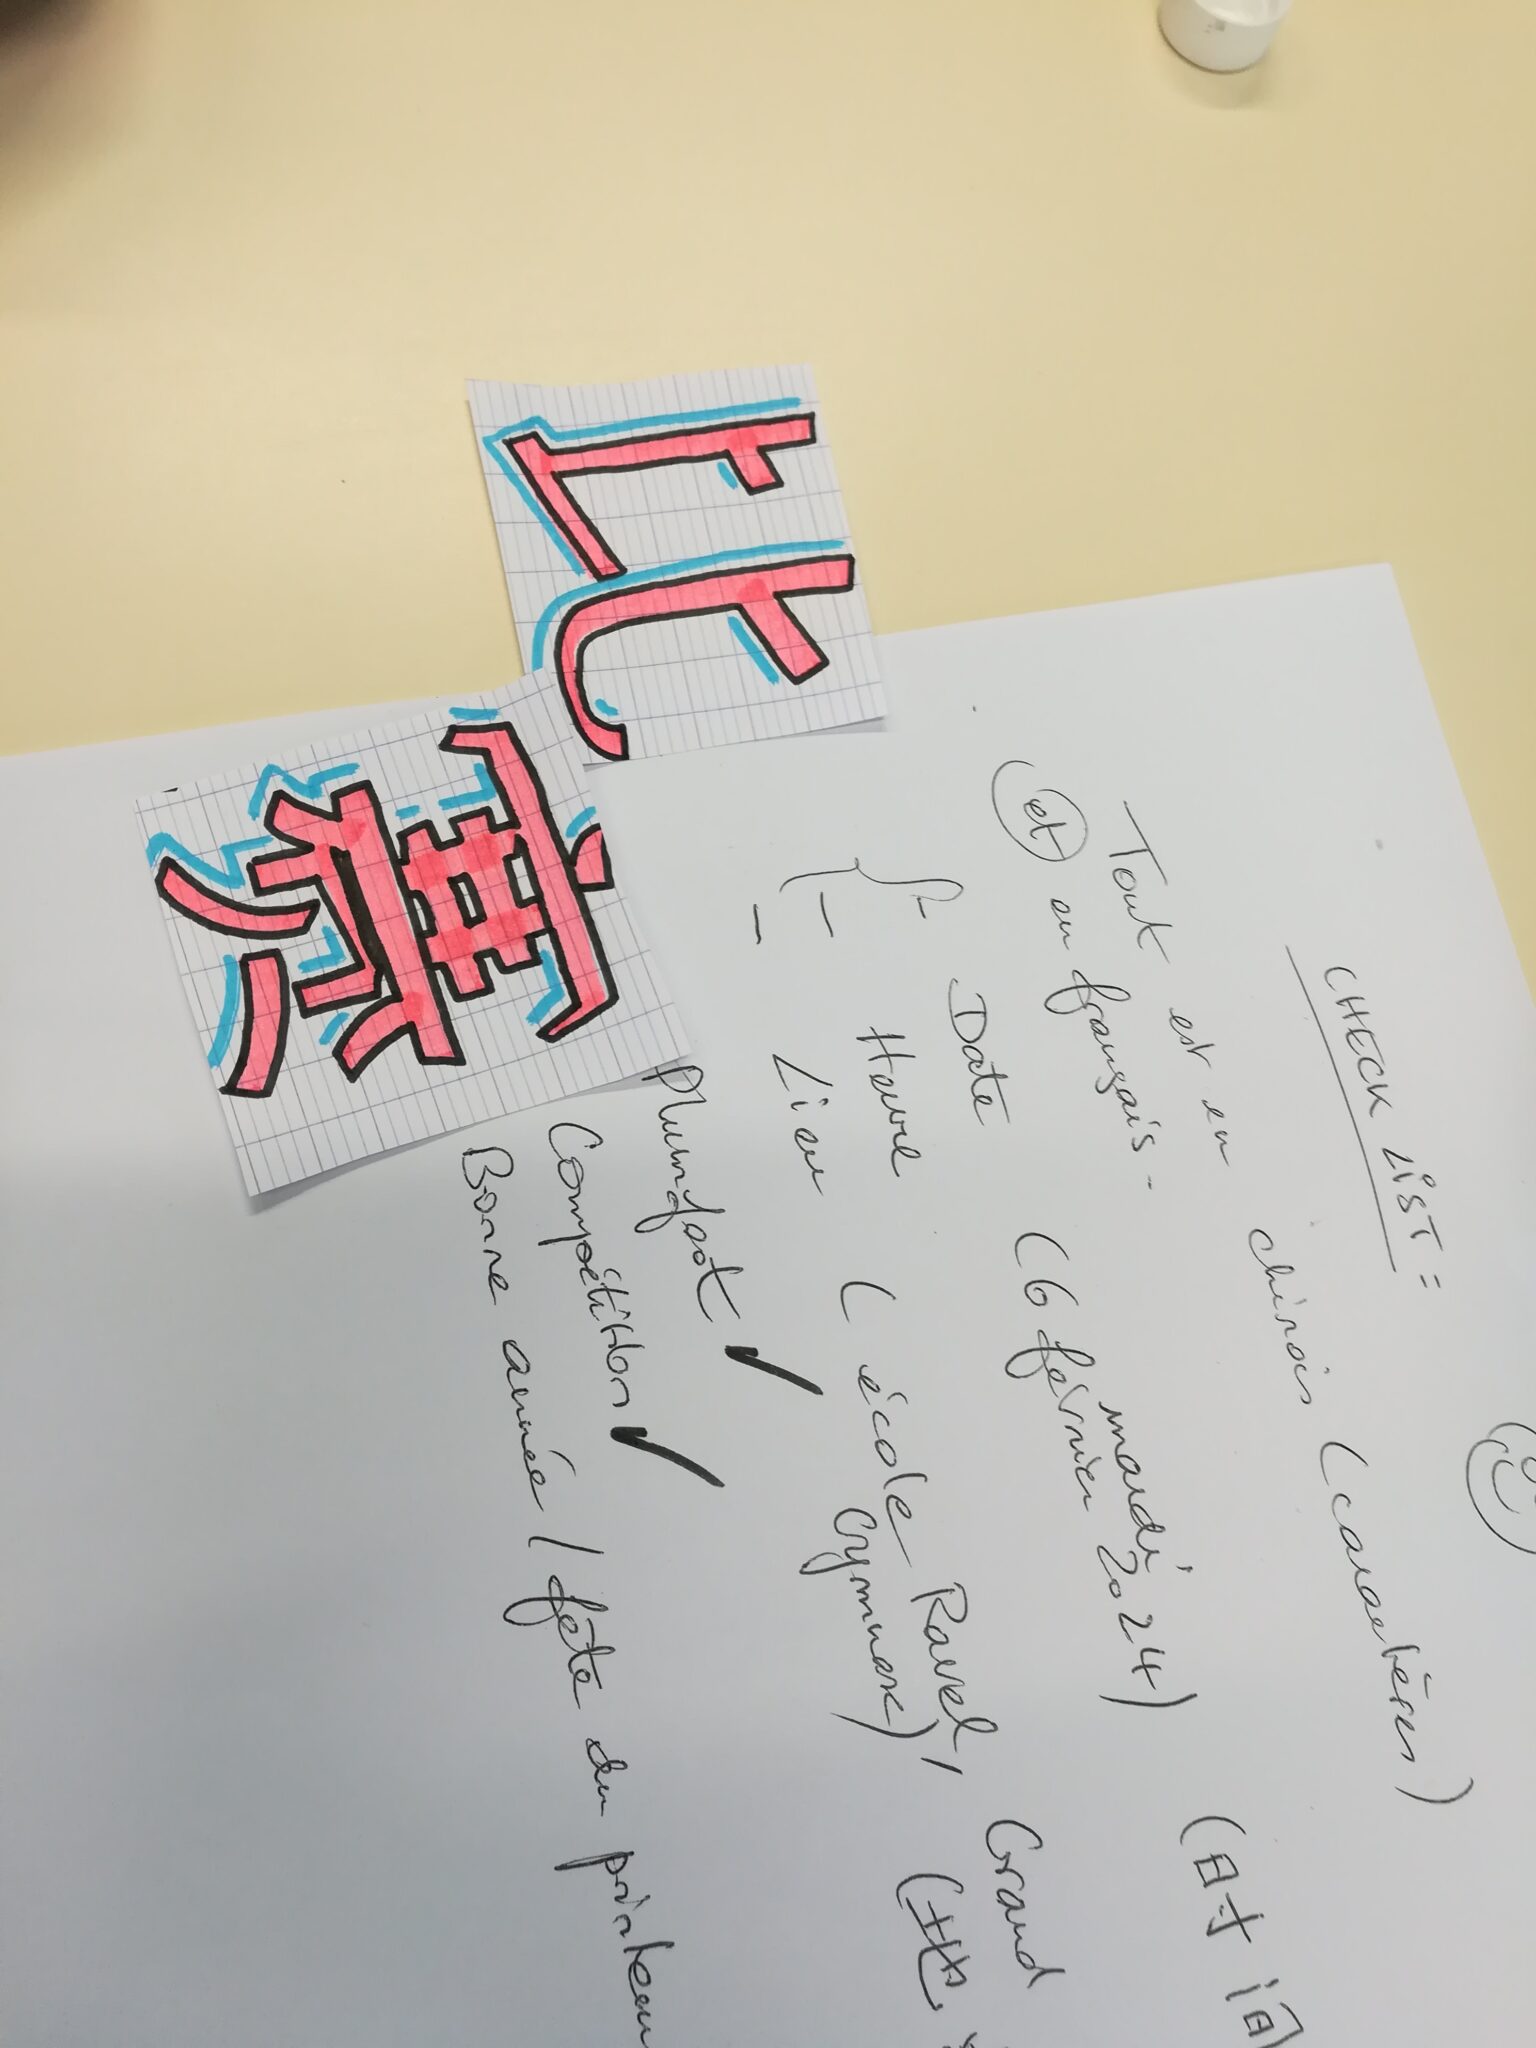 比
赛
CHECK LIST :
Tout est en chinois (caractères)
et en français.
- Date (mardi 6 février 2024) (时间)
- Heure
- Lieu (école Ravel, Grand Gymnase) (地
Plumfoot ✓
Compétition ✓
Bonne année / fête du printem